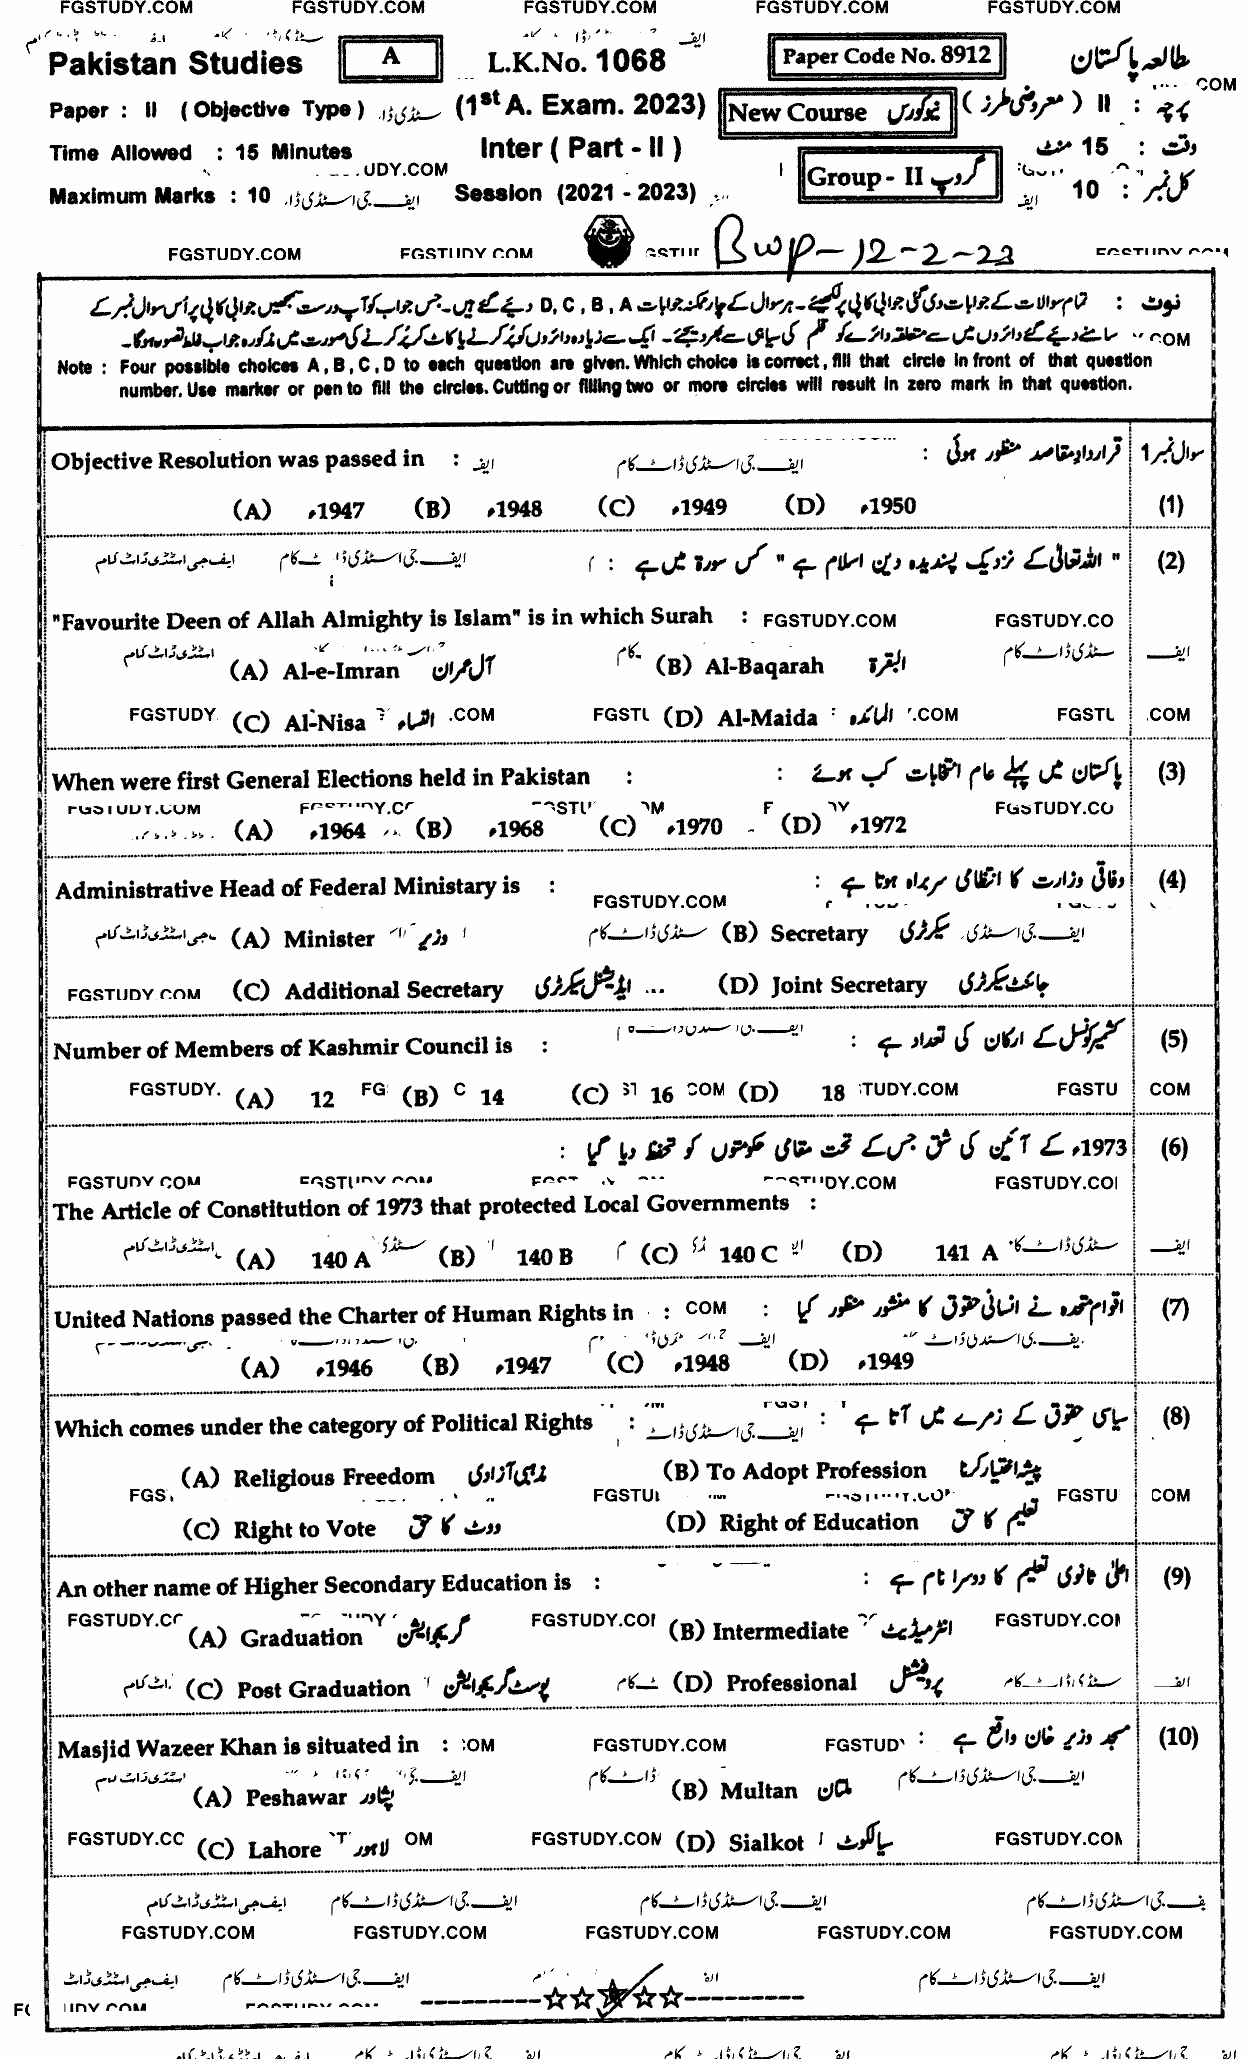 FGSTUDY.COM FGSTUDY.COM FGSTUDY.COM FGSTUDY.COM FGSTUDY.COM
Pakistan Studies A L.K.No. 1068 Paper Code No. 8912 مطالعہ پاکستان
Paper : II ( Objective Type ) (1st A. Exam. 2023) New Course نیو کورس پرچہ : II ( معروضی طرز )
Time Allowed : 15 Minutes Inter ( Part - II ) وقت : 15 منٹ
Maximum Marks : 10 Session (2021 - 2023) Group - II گروپ کل نمبر : 10
FGSTUDY.COM FGSTUDY.COM Bwp-12-2-23
نوٹ : تمام سوالات کے جوابات دی گئی جوابی کاپی پر لکھیئے۔ ہر سوال کے چار ممکنہ جوابات D , C , B , A دیئے گئے ہیں۔ جس جواب کو آپ درست سمجھیں جوابی کاپی پر اُس سوال نمبر کے
سامنے دیئے گئے دائروں میں سے متعلقہ دائرے کو قلم کی سیاہی سے بھر دیجئے۔ ایک سے زیادہ دائروں کو پُر کرنے یا کاٹ کر پُر کرنے کی صورت میں مذکورہ جواب غلط تصور ہوگا۔
Note : Four possible choices A , B , C , D to each question are given. Which choice is correct , fill that circle in front of that question
number. Use marker or pen to fill the circles. Cutting or filling two or more circles will result in zero mark in that question.
Objective Resolution was passed in : قرار دادِ مقاصد منظور ہوئی : سوال نمبر 1
(A) 1947ء (B) 1948ء (C) 1949ء (D) 1950ء (1)
" اللہ تعالٰی کے نزدیک پسندیدہ دین اسلام ہے " کس سورۃ میں ہے : (2)
"Favourite Deen of Allah Almighty is Islam" is in which Surah : FGSTUDY.COM
(A) Al-e-Imran آل عمران (B) Al-Baqarah البقرۃ
(C) Al-Nisa النساء (D) Al-Maida المائدہ
When were first General Elections held in Pakistan : پاکستان میں پہلے عام انتخابات کب ہوئے : (3)
(A) 1964ء (B) 1968ء (C) 1970ء (D) 1972ء
Administrative Head of Federal Ministary is : وفاقی وزارت کا انتظامی سربراہ ہوتا ہے : (4)
FGSTUDY.COM
(A) Minister وزیر (B) Secretary سیکرٹری
FGSTUDY.COM (C) Additional Secretary ایڈیشنل سیکرٹری (D) Joint Secretary جائنٹ سیکرٹری
Number of Members of Kashmir Council is : کشمیر کونسل کے ارکان کی تعداد ہے : (5)
(A) 12 (B) 14 (C) 16 (D) 18
1973ء کے آئین کی شق جس کے تحت مقامی حکومتوں کو تحفظ دیا گیا : (6)
The Article of Constitution of 1973 that protected Local Governments :
(A) 140 A (B) 140 B (C) 140 C (D) 141 A
United Nations passed the Charter of Human Rights in : اقوام متحدہ نے انسانی حقوق کا منشور منظور کیا : (7)
(A) 1946ء (B) 1947ء (C) 1948ء (D) 1949ء
Which comes under the category of Political Rights : سیاسی حقوق کے زمرے میں آتا ہے : (8)
(A) Religious Freedom مذہبی آزادی (B) To Adopt Profession پیشہ اختیار کرنا
(C) Right to Vote ووٹ کا حق (D) Right of Education تعلیم کا حق
An other name of Higher Secondary Education is : اعلٰی ثانوی تعلیم کا دوسرا نام ہے : (9)
(A) Graduation گریجوایشن (B) Intermediate انٹرمیڈیٹ
(C) Post Graduation پوسٹ گریجوایشن (D) Professional پروفیشنل
Masjid Wazeer Khan is situated in : مسجد وزیر خان واقع ہے : (10)
FGSTUDY.COM
(A) Peshawar پشاور (B) Multan ملتان
(C) Lahore لاہور (D) Sialkot سیالکوٹ
ایف جی اسٹڈی ڈاٹ کام ایف جی اسٹڈی ڈاٹ کام ایف جی اسٹڈی ڈاٹ کام
FGSTUDY.COM FGSTUDY.COM FGSTUDY.COM FGSTUDY.COM FGSTUDY.COM
ایف جی اسٹڈی ڈاٹ کام ایف جی اسٹڈی ڈاٹ کام